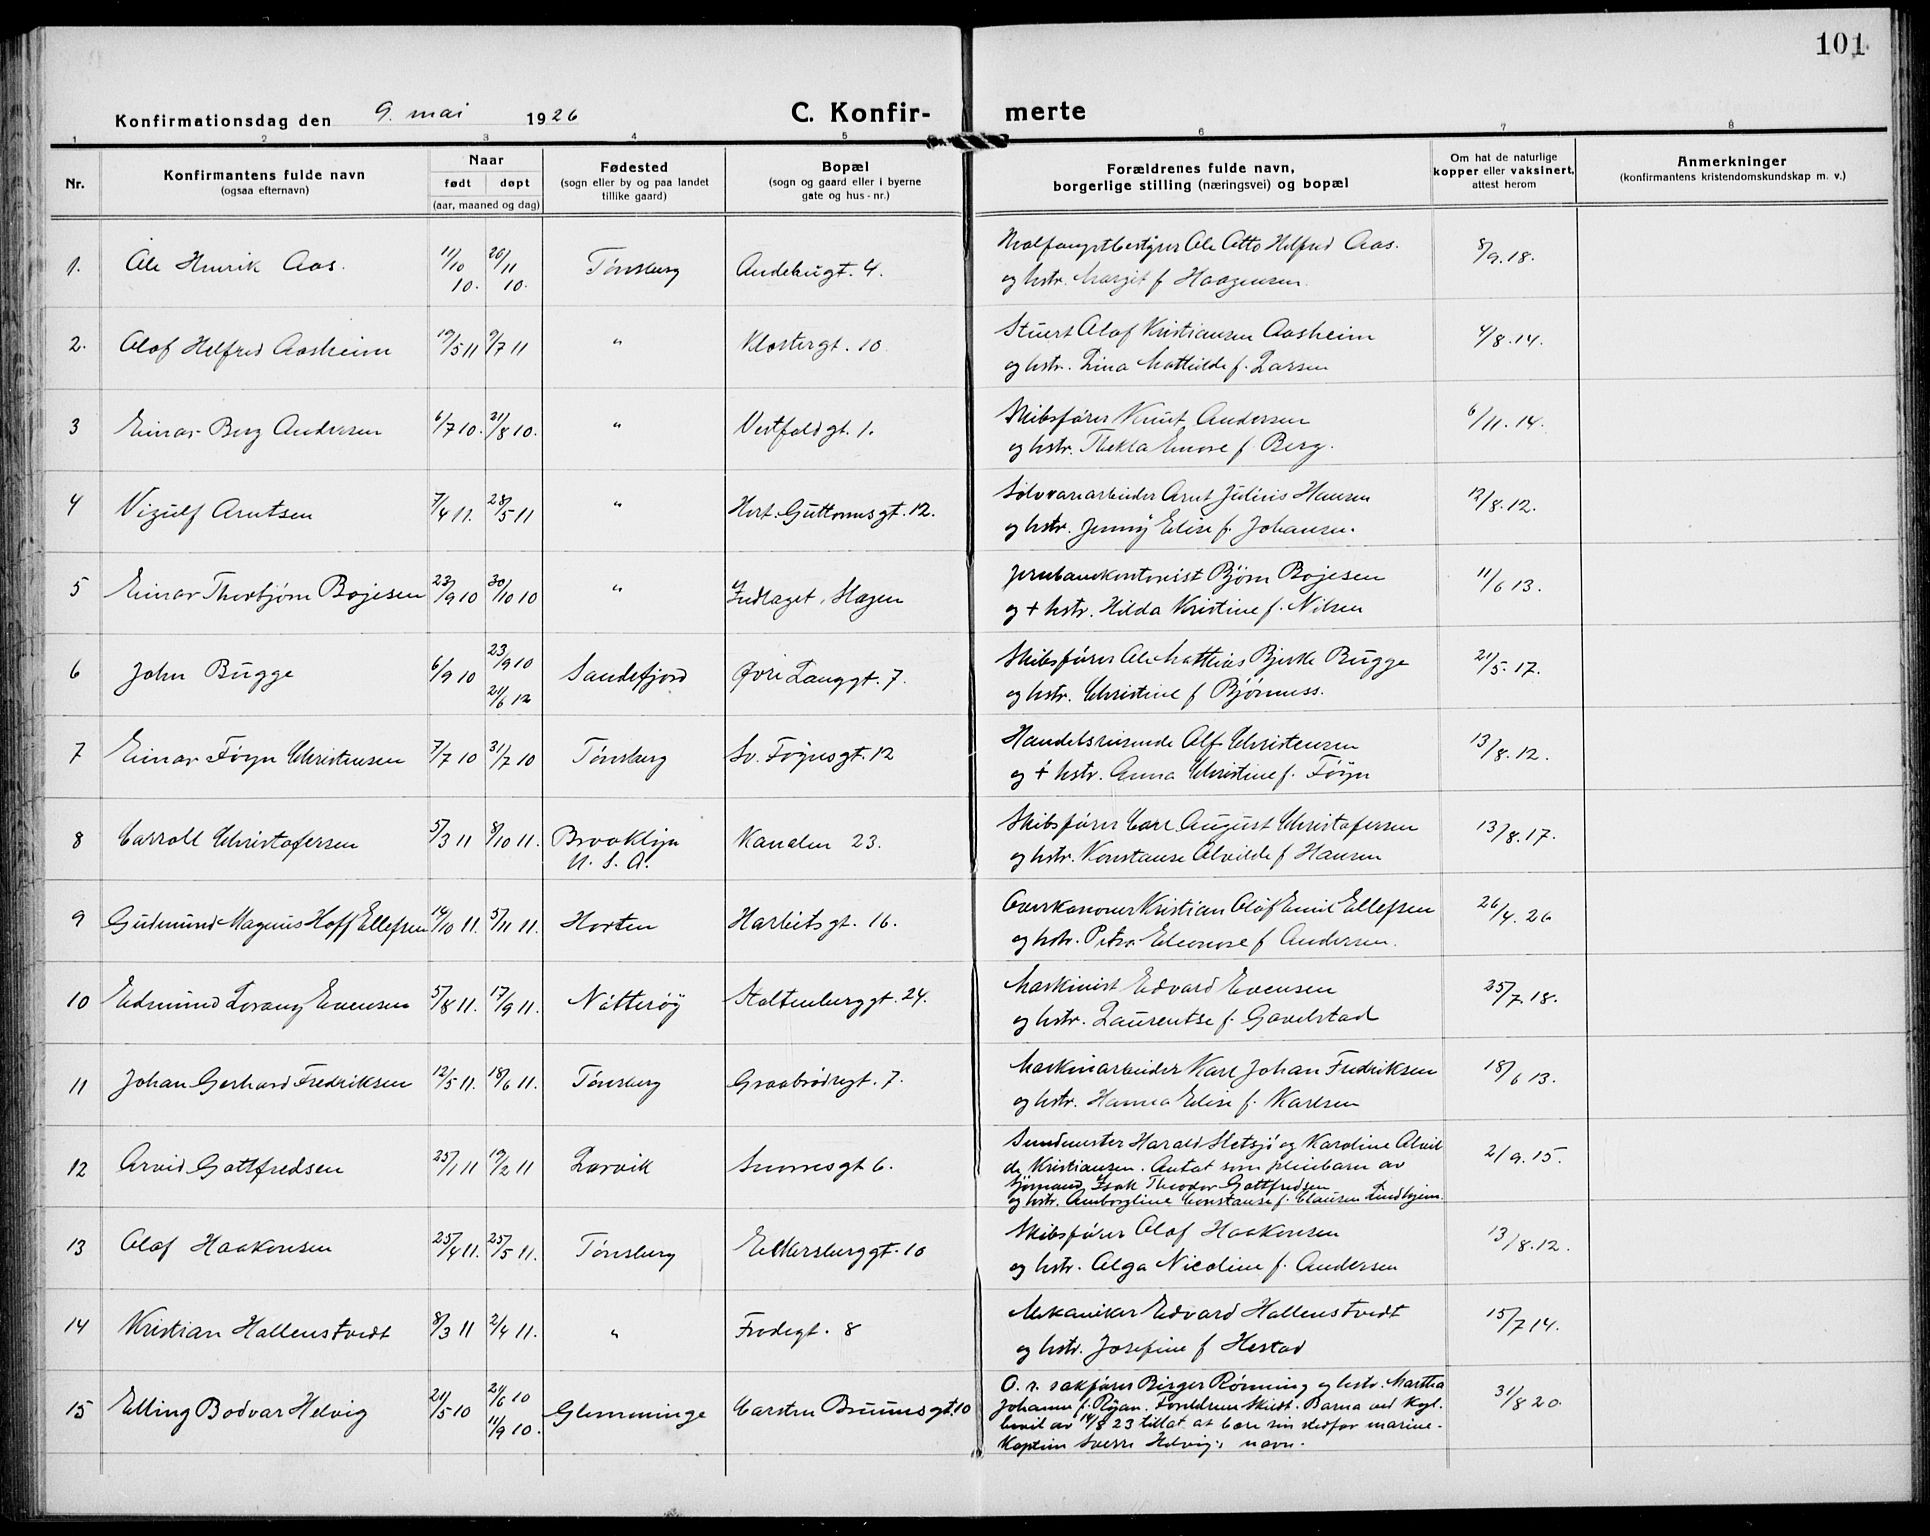 101
Konfirmationsdag den 9. mai 1926 C. Konfir- merte
1 2 3 4 5 6 7 8
Nr. Konfirmantens fulde navn (ogsaa efternavn) Naar født døpt (aar, maaned og dag) Fødested (sogn eller by og paa landet tillike gaard) Bopæl (sogn og gaard eller i byerne gate og hus-nr.) Forældrenes fulde navn, borgerlige stilling (næringsvei) og bopæl Om hat de naturlige kopper eller vaksinert, attest herom Anmerkninger (konfirmantens kristendomskundskap m. v.)
1. Ole Henrik Aas. 11/10 10. 20/11 10. Tønsberg Andebugt. 4. Hvalfangstbestyrer Ole Otto Helfred Aas. 8/9.18.
og hstr. Margit f Haagensen.
2. Olof Helfred Aasheim 19/5 11 9/7 11 " Klostergt. 10 Stuert Olof Kristiansen Aasheim 4/8.14.
og hstr. Lina Mathilde f. Larsen
3 Einar Berg Andersen 6/7 10. 21/8 10. " Vestfoldgt. 1. Skibsfører Knut Andersen 6/11.14.
og hstr. Thekla Enose f Berg.
4 Vigulf Arntsen 7/4 11. 28/5 11 " Hert. Guttormsgt. 12. Sølvvarearbeider Arnt Julius Hansen 12/8.12.
og hstr. Jenny Elise f. Johansen.
5 Einar Thorbjørn Bojesen 23/9 10 30/10 10 " Indlaget, Slagen Jernbanekontorist Bjørn Bojesen 11/6 13.
og + hstr. Hilda Kristine f. Nilsen
6 John Bugge 6/9 10 23/9 10 21/6 12 Sandefjord Øvre Langgt. 7. Skibsfører Ole Mathias Bjerke Bugge 21/5.17.
og hstr. Christine f Bjørnness.
7 Einar Føyn Christensen 7/7 10 31/7 10 Tønsberg Sv. Føynsgt. 12 Handelsreisende Alf Christensen 13/8.12.
og + hstr. Anna Christine f. Føyn
8 Carroll Christofersen 5/3 11 8/10 11. Brooklyn U. S. A. Kanalen 23. Skibsfører Carl August Christofersen 13/8.17.
og hstr. Konstanse Alvilde f Hansen
9 Gudmund Magnus Hoff Ellefsen 14/10 11. 5/11 11. Horten Harbitsgt. 16. Overkanoner Kristian Olaf Emil Ellefsen 26/4.26
og hstr. Petra Eleonore f Andersen.
10 Edmund Lorang Evensen 5/8 11. 17/9 11. Nøtterøy Stoltenberggt. 24. Maskinist Edvard Evensen 25/7.18.
og hstr. Laurentse f. Gavelstad
11 Johan Gerhard Fredriksen 12/5 11. 18/6 11. Tønsberg Graabrødregt. 7. Maskinarbeider Karl Johan Fredriksen 18/6 13.
og hstr. Hanna Elise f. Karlsen
12 Arvid Gottfredsen 25/1 11 19/2 11 Larvik Snorresgt 6. Sundmester Harald Sletsjø og Karoline Alvil 2/9.15.
de Kristiansen. Antat som pleiebarn av
sjømand Isak Theodor Gottfredsen
og hstr. Amborgline Constanse f Clausen Lindhjem.
13 Olaf Haakonsen 25/4 11. 25/5 11. Tønsberg Eilkersberggt. 10 Skibsfører Olaf Haakonsen 13/8.12.
og hstr. Olga Nicoline f. Andersen
14 Kristian Hallenstvedt 8/3 11 2/4 11. " Frodegt. 8 Mekaniker Edvard Hallenstvedt 15/7 14.
og hstr. Josefine f Hestad
15 Elling Bodvar Helvig 21/5 10 21/6 10 11/9 10. Glemminge Carsten Bruunsgt. 10 O. r. sakfører Birger Rønning og hstr. Martha 31/8 20.
Johanne f. Ryan. Foreldrene skidt. Barna ved kgl.
bevil av 14/8 23 tillat at bære sin stedfar marine-
kaptein Sverre Helvigs navn.